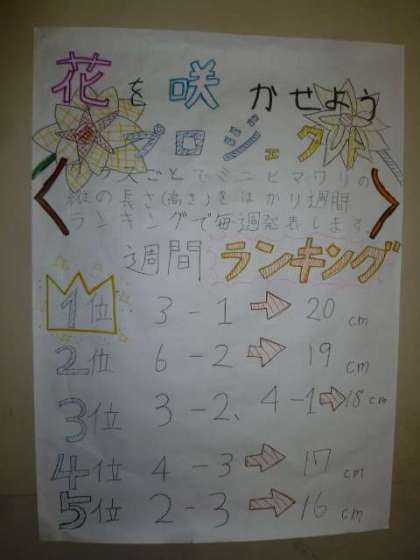 花を咲かせよう
プロジェクト
クラスごとでミニヒマワリの
縦の長さ(高さ)をはかり週間
ランキングで毎週発表します。
週間ランキング
1位 3-1 → 20cm
2位 6-2 → 19cm
3位 3-2、4-1→18cm
4位 4-3 → 17cm
5位 2-3 → 16cm